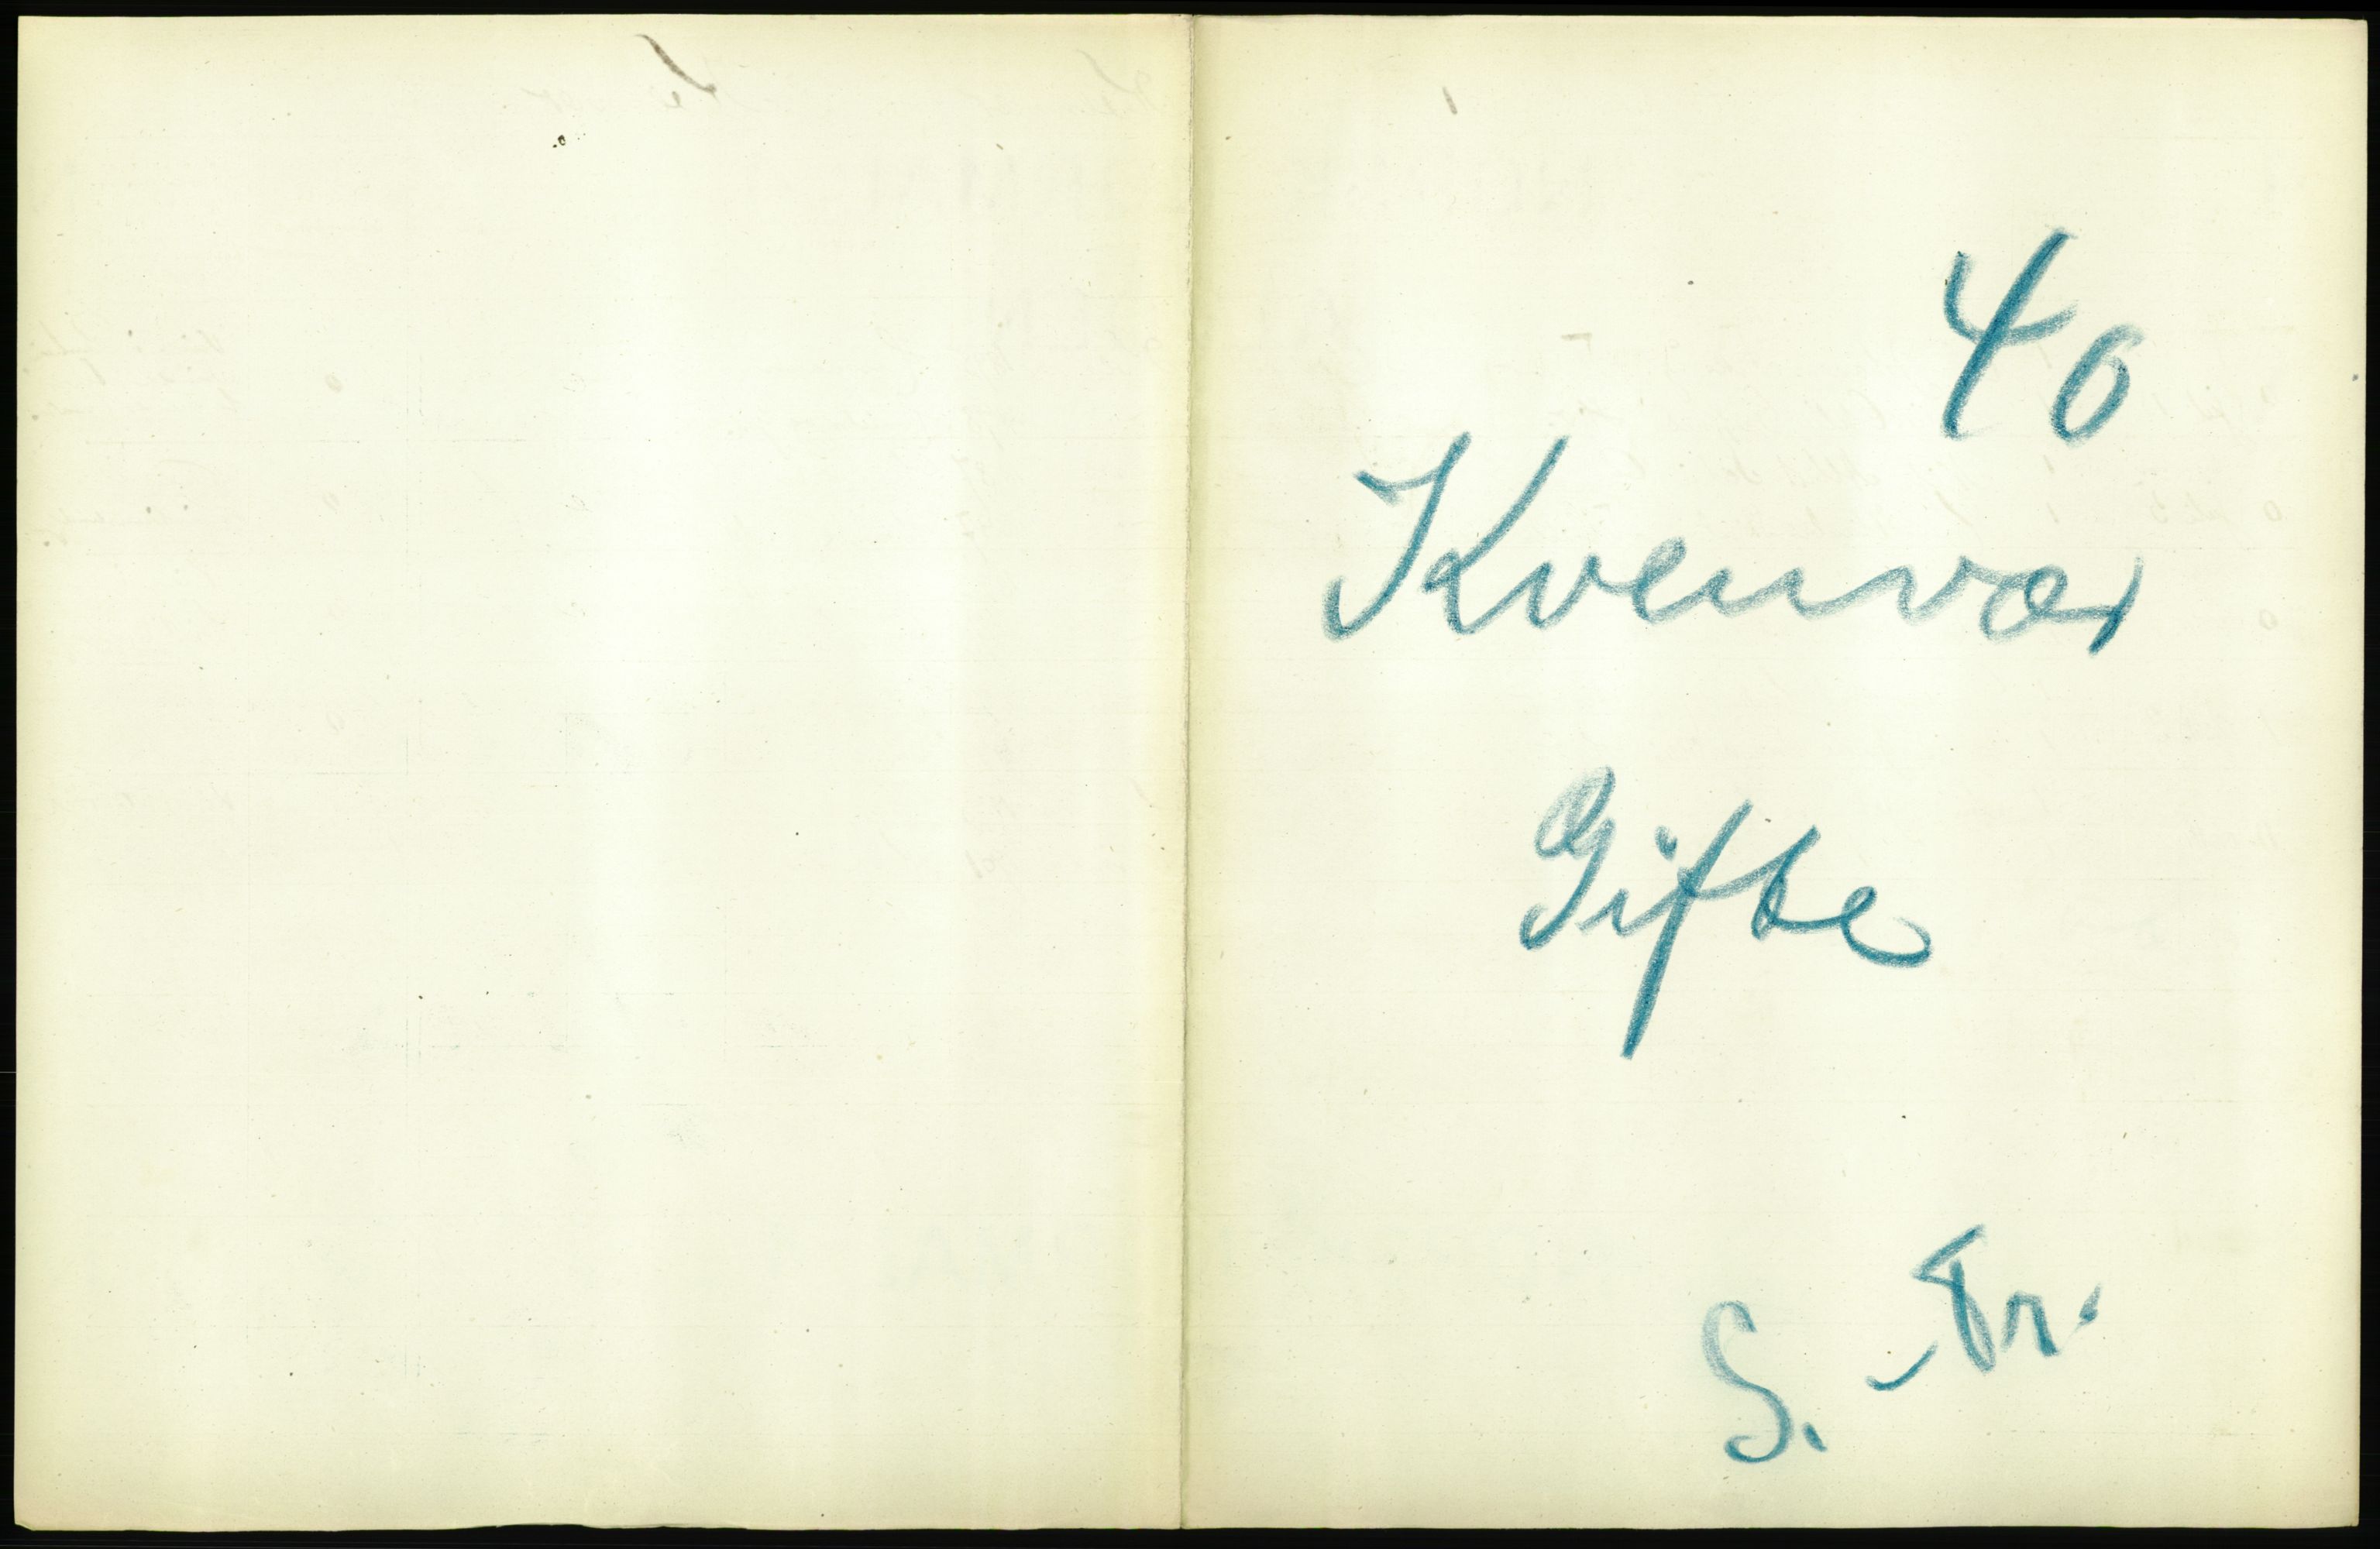 40
Kvenvær
Gifte
S. Tr.